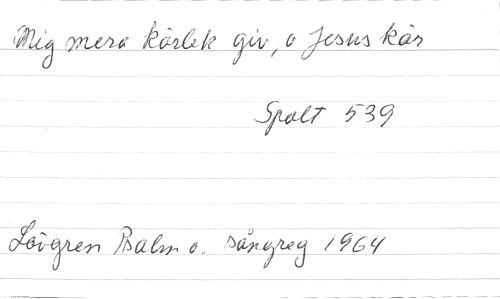 Mig mera kärlek giv, o Jesus kär
Spalt 539
Lövgren Psalm o. sångreg 1964